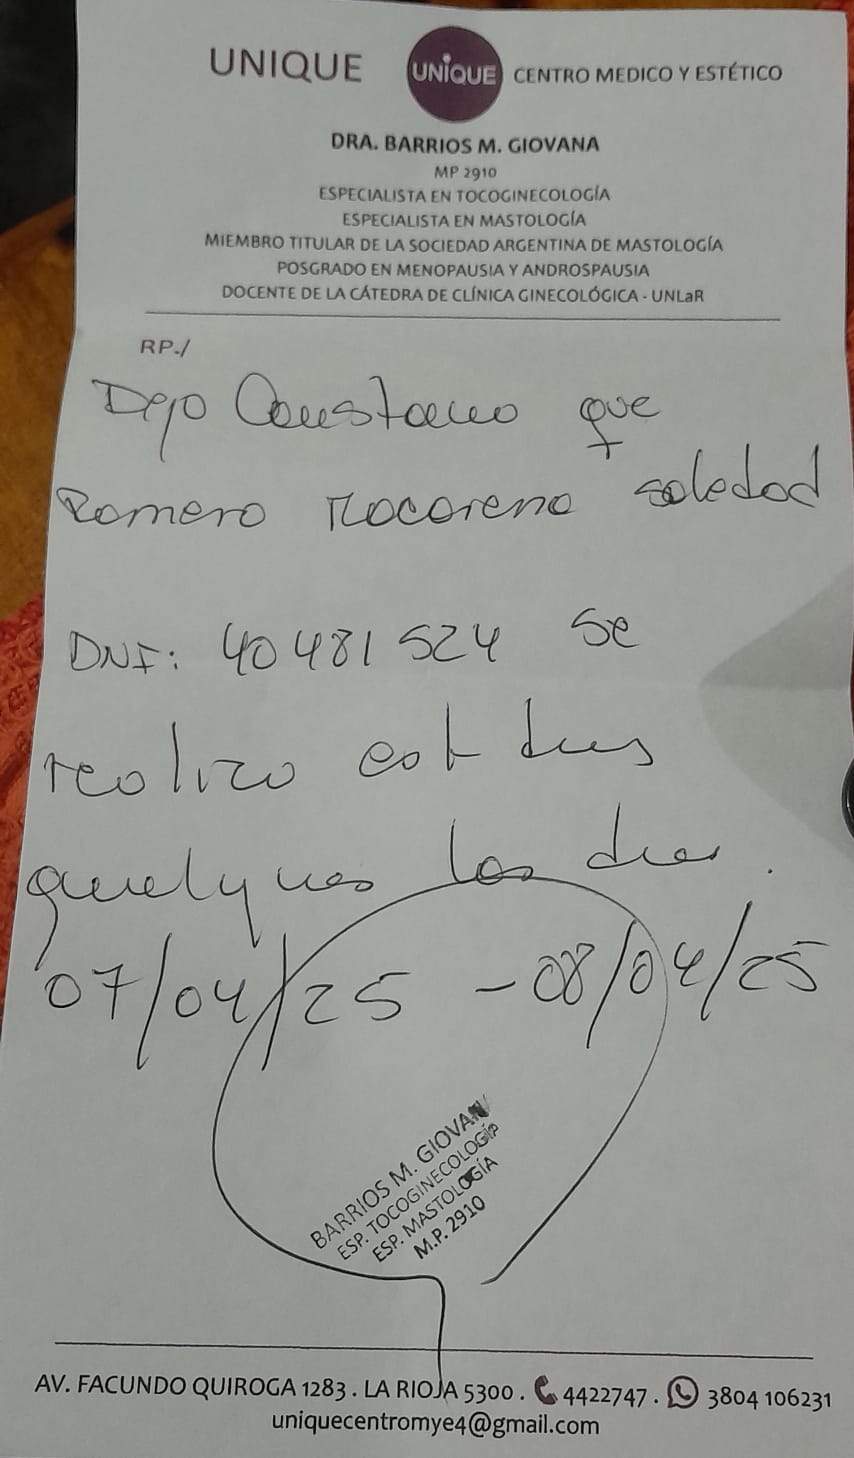 UNIQUE UNIQUE CENTRO MEDICO Y ESTÉTICO
DRA. BARRIOS M. GIOVANA
MP 2910
ESPECIALISTA EN TOCOGINECOLOGÍA
ESPECIALISTA EN MASTOLOGÍA
MIEMBRO TITULAR DE LA SOCIEDAD ARGENTINA DE MASTOLOGÍA
POSGRADO EN MENOPAUSIA Y ANDROSPAUSIA
DOCENTE DE LA CÁTEDRA DE CLÍNICA GINECOLÓGICA - UNLaR
RP./
Dejo Constancia que
Romero Macarena Soledad
DNI: 40481524 se
realizo estudios
los dias.
07/04/25 - 08/04/25
BARRIOS M. GIOVAN
ESP. TOCOGINECOLOGÍA
ESP. MASTOLOGÍA
M.P. 2910
AV. FACUNDO QUIROGA 1283 . LA RIOJA 5300 . 4422747 . 3804 106231
uniquecentromye4@gmail.com